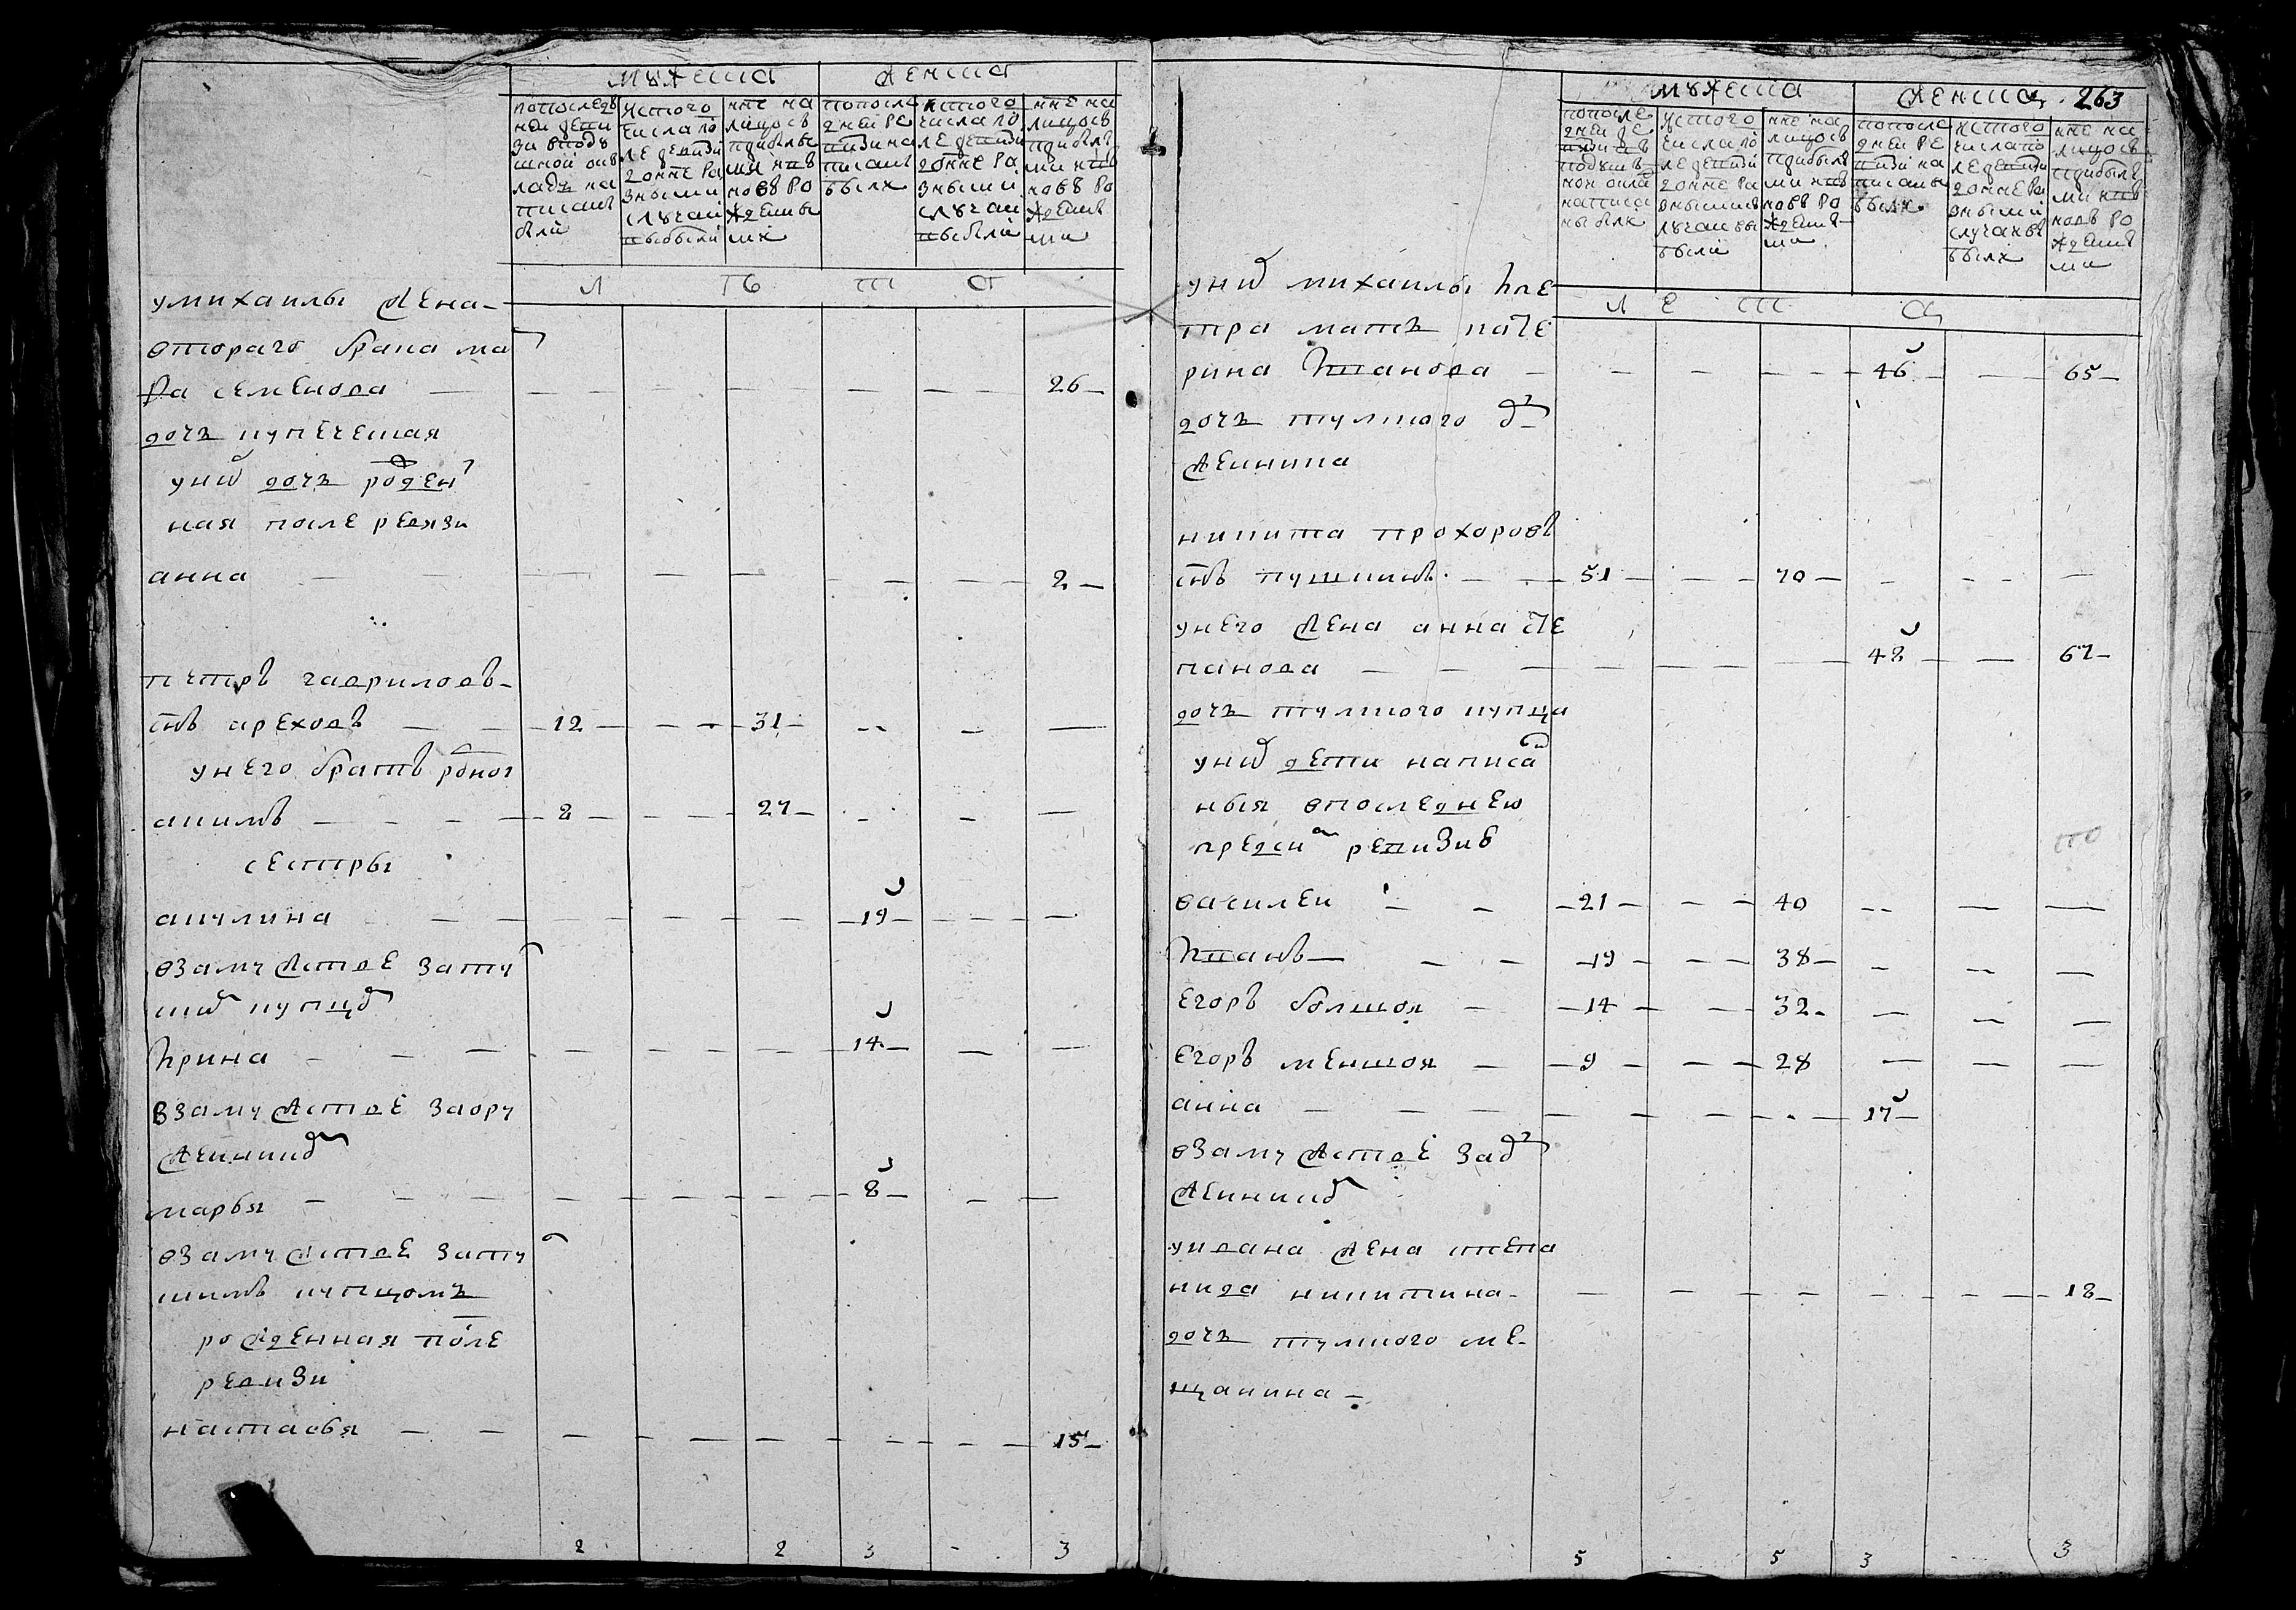 мужеска женска
попоследней ревизи вподушной оклад написаны были
истого числа после ревизии доныне разными случаи выбыли
ныне налицо съ прибылыми и вновь рожденными
попоследней ревизии написаны были
истого числа после ревизии доныне разными случаи выбыли
ныне налицо съ прибылыми и вновь рожденными
л ѣ т а
умихаилы жена
второго брака ма
ра семенова — 26
дочь купеческая
уних дочь рожден
ная после ревизи
анна — 2
петръ гавриловъ
снъ ореховъ — 12 — 31
унего братъ родной
акимъ — 8 — 27
сестры
акулина — 19
взамужстве зату
ским купцом
Ирина — 14
взамужстве заору
жеиником
марья — 8
взамужстве зату
скимъ купцомъ
рожденная после
ревизи
настасья — 15
2 2 3 - 3
263
мужеска женска
попоследней ревизии въ подушной оклад написаны были
истого числа после ревизии доныне разными случаи выбыли
ныне налицо съ прибылыми и вновь рожденными
попоследней ревизии написаны были
истого числа после ревизии доныне разными случаи выбыли
ныне налицо съ прибылыми и вновь рожденными
л е т а
уних михаилы Ипе
тра мать кате
рина Иванова — 46 — 65
дочь тулского ору
жеиника
никита прохоровъ
снъ пушкинъ — 51 — 70
унего жена анна сте
панова — 48 — 67
дочь тулского купца
уних дети написан
ныя впоследнею
пред сим ревизию
василеи — 21 — 40
Иванъ — 19 — 38
Егоръ болшоя — 14 — 32
Егоръ меншоя — 9 — 28
анна — 17
взамужстве заору
жеиником
уивана жена степа
нида никитина — 18
дочь тулского ме
щанина
5 - 5 3 - 3